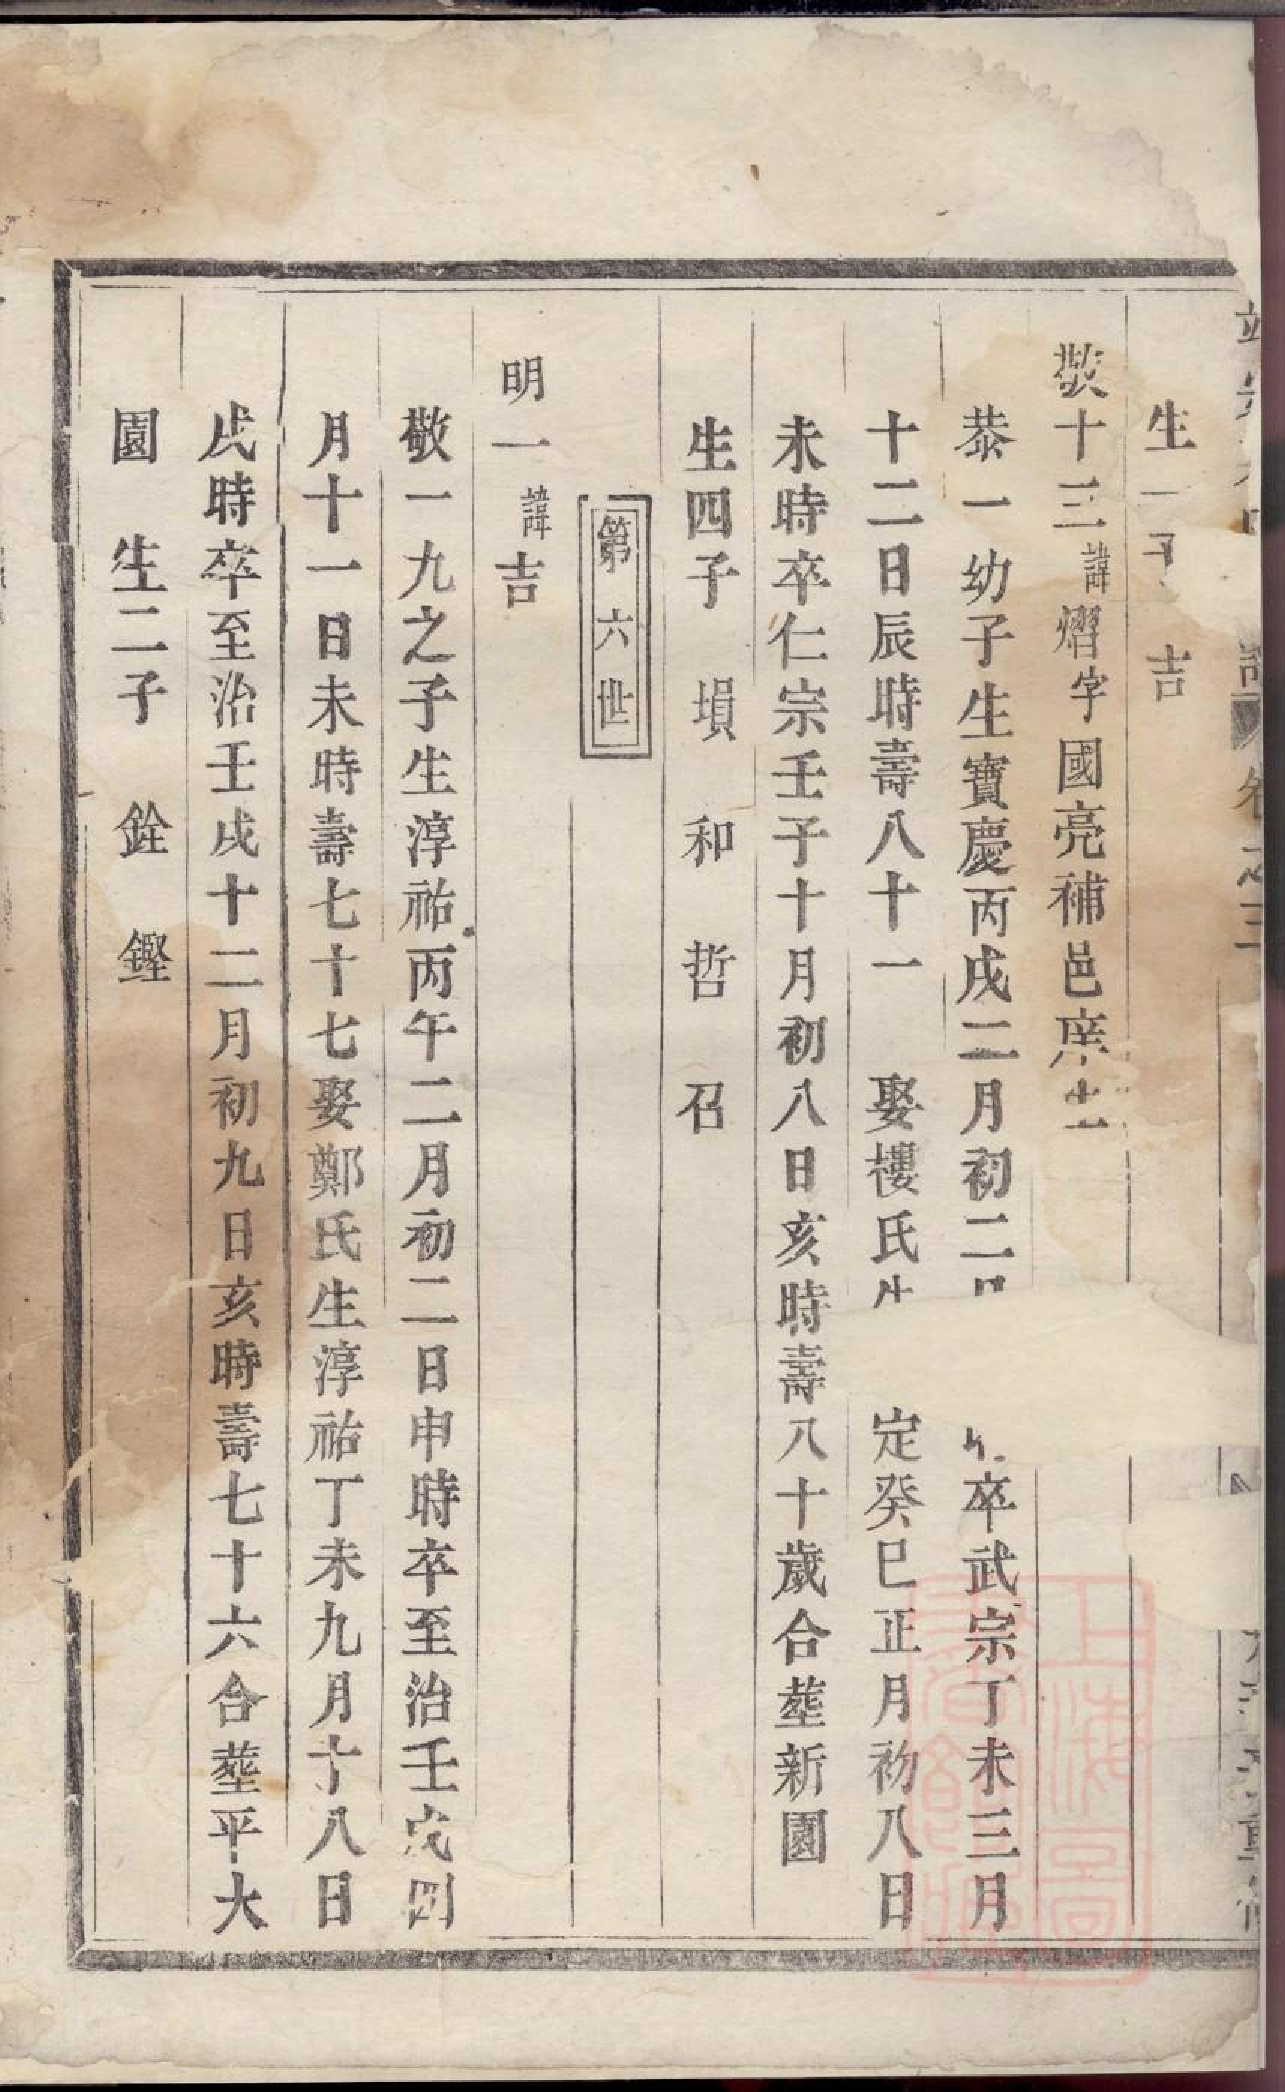 生一子 吉
敬十三諱熠字國亮補邑庠生
恭一幼子生寶慶丙戌二月初二 卒武宗丁未三月
十二日辰時壽八十一 娶樓氏生 定癸巳正月初八日
未時卒仁宗壬子十月初八日亥時壽八十歲合塟新園
生四子 塤 和 哲 召
第六世
明一諱吉
敬一九之子生淳祐丙午二月初二日申時卒至治壬戌四
月十一日未時壽七十七娶鄭氏生淳祐丁未九月十八日
戌時卒至治壬戌十二月初九日亥時壽七十六合塟平大
園 生二子 銓 鏗